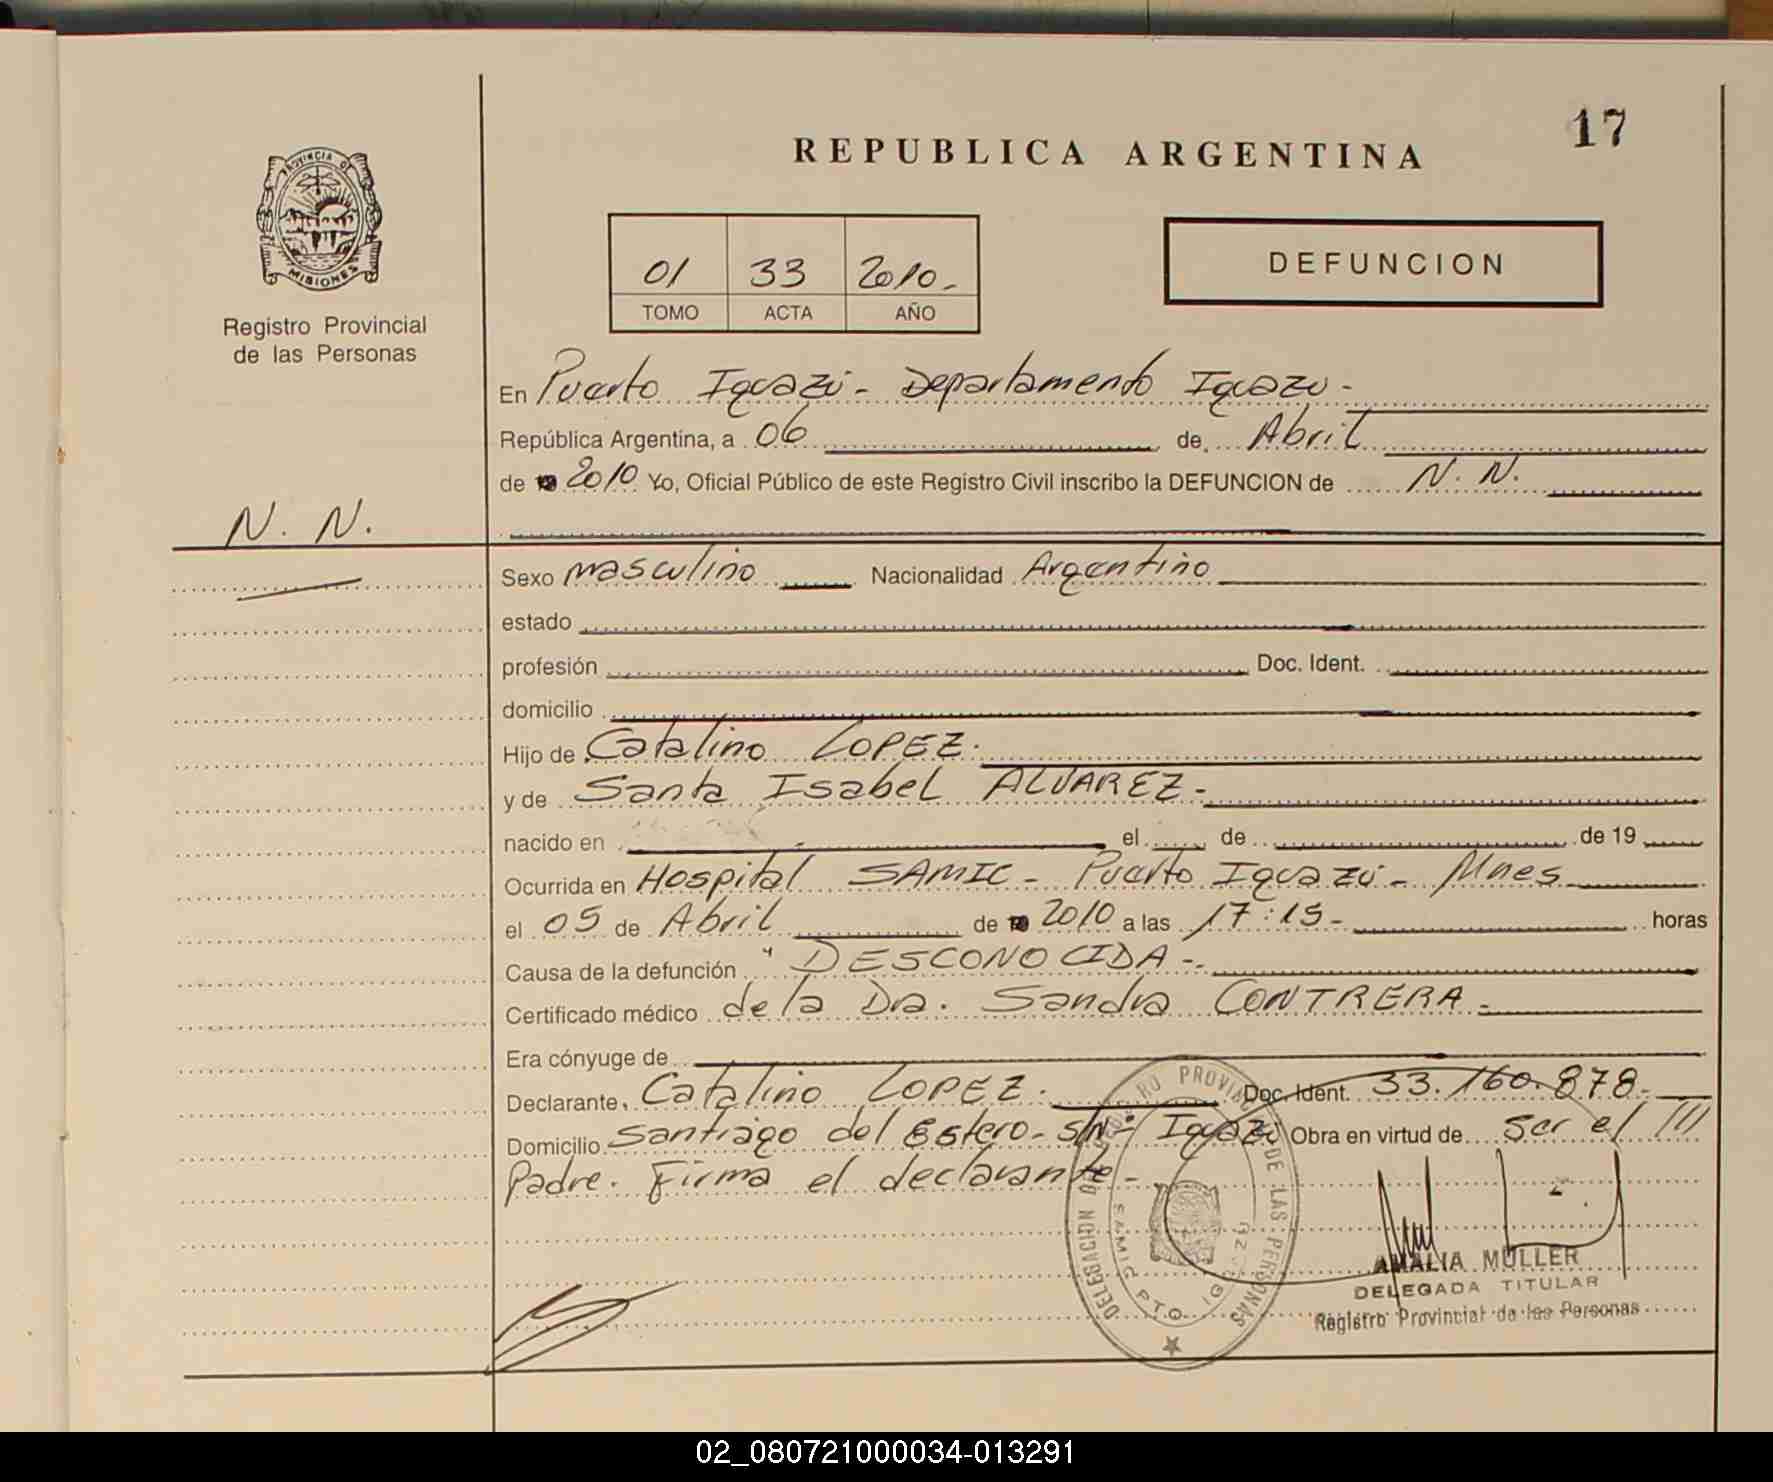 17
REPUBLICA ARGENTINA
PROVINCIA DE
MISIONES
Registro Provincial
de las Personas
01 33 2010.-
TOMO ACTA AÑO
DEFUNCION
En Puerto Iguazú - Departamento Iguazu -
República Argentina, a 06 de Abril
de 2010 Yo, Oficial Público de este Registro Civil inscribo la DEFUNCION de N. N.
N. N.
Sexo masculino Nacionalidad Argentino
estado
profesión Doc. Ident.
domicilio
Hijo de Catalino LOPEZ.
y de Santa Isabel ALVAREZ -
nacido en el de de 19
Ocurrida en Hospital SAMIC - Puerto Iguazú - Mnes
el 05 de Abril de 2010 a las 17:15 - horas
Causa de la defunción " DESCONOCIDA -.
Certificado médico de la Dra. Sandra CONTRERA -
Era cónyuge de
Declarante, Catalino LOPEZ. Doc. Ident. 33.160.878-
Domicilio Santiago del Estero - S/N: Iguazú Obra en virtud de ser el
Padre. Firma el declarante -
DELEGACION DE REGISTRO PROVINCIAL DE LAS PERSONAS
PTO IGUAZU
AMALIA MULLER
DELEGADA TITULAR
Registro Provincial de las Personas
02_080721000034-013291